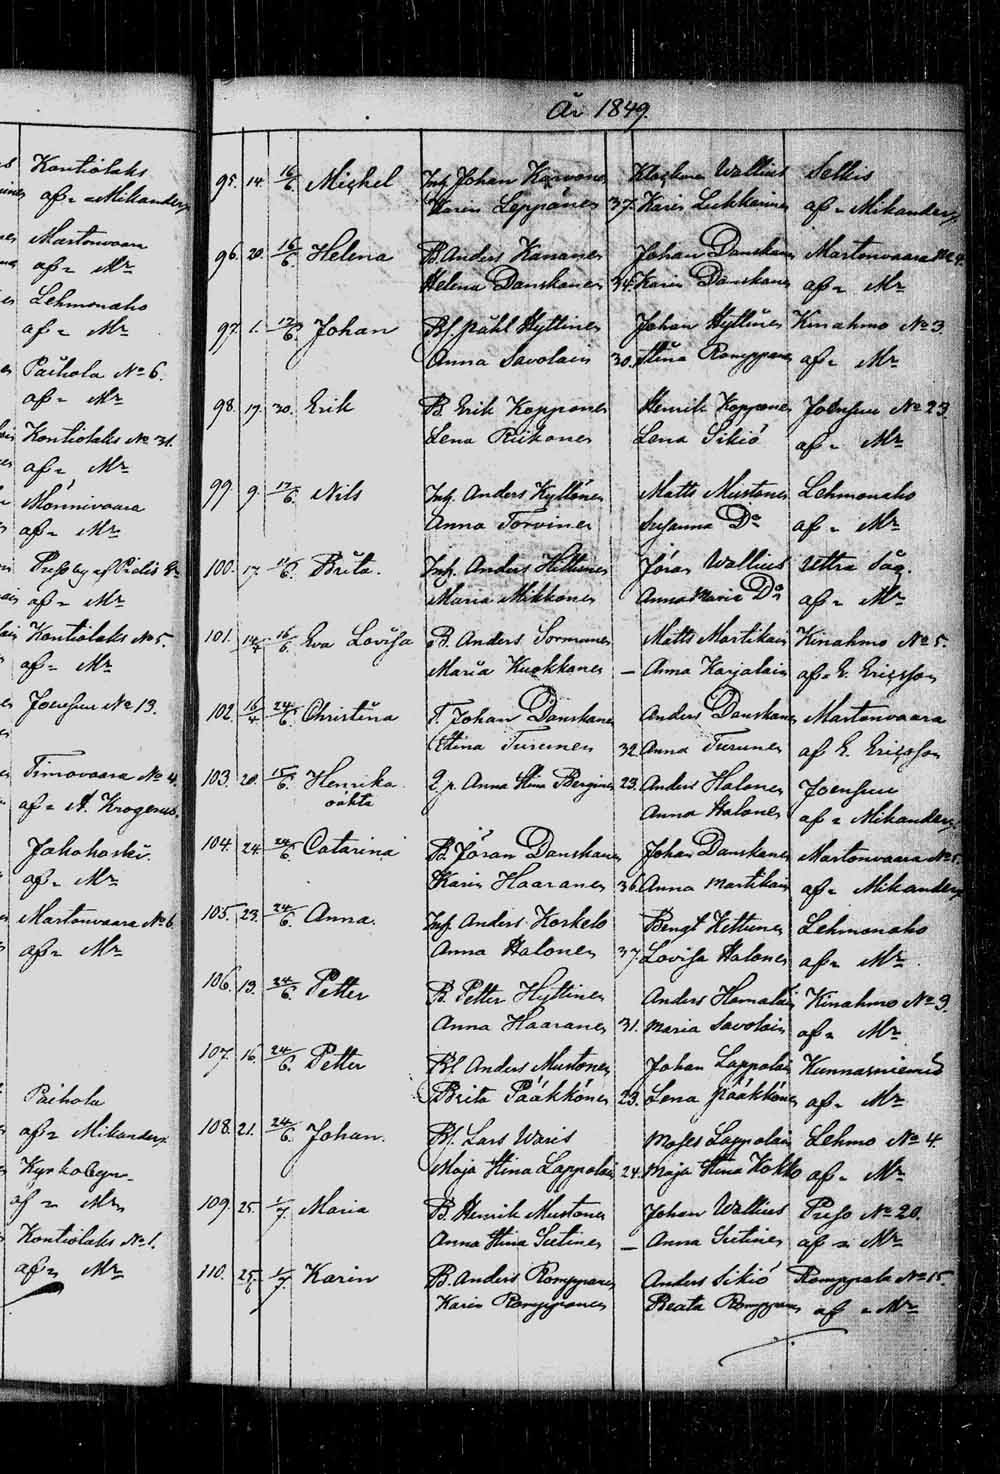 Kontiolaks
af - Mikander
Martonvaara
af - Mr
Lehmonaho
af - Mr
Paihola No 6.
af - Mr
Kontiolaks No 31.
af - Mr
Mönnivaara
af - Mr
af - Mr
Kontiolaks No 5.
af - Mr
Joensuu No 13.
Timovaara No 4.
af - A. Krogerus.
Jakokoski.
af - Mr
Martonvaara No 6.
af - Mr
Paihola
af - Mikander
Kyrkobyn
af - Mr
Kontiolaks No 1.
af - Mr
År 1849.
95. 14. 16/6. Michel Inh. Johan Karvonen Wallius Selkis
Karin Leppänen 37. Karin Lukkarinen af - Mikander
96. 20. 16/6. Helena B. Anders Kananen Johan Danskanen Martonvaara No 4.
Helena Danskanen 34. Karin Danskanen af - Mr
97. 1. 17/6. Johan Bf. Påhl Hyttinen Johan Hyttinen Kinahmo No 3.
Anna Savolain 30. Stina Romppanen af - Mr
98. 17. 30. Erik B. Erik Kopponen Henrik Kopponen Joensuu No 23.
Lena Riikonen Lena Sikiö af - Mr
99. 9. 17/6. Nils Inh. Anders Kyllönen Matts Mustonen Lehmonaho
Anna Torvinen Susanna Do af - Mr
100. 17. 17/6. Brita. Inh. Anders Hettunen Jöran Wallius Uttra såg.
Maria Mikkonen Anna Maria Do af - Mr
101. 14/4 16/6. Eva Lovisa B. Anders Sormunen Matts Martikain Kinahmo No 5.
Maria Kuokkanen — Anna Karjalain af E. Ericsson
102. 16/4 24/6. Christina T. Johan Danskanen Anders Danskanen Martonvaara
Stina Turunen 32. Anna Turunen af E. Ericsson
103. 20. 15/6. Henrika Q. p. Anna Stina Bergina 23. Anders Halonen Joensuu
oäkta Anna Halonen af - Mikander
104. 24. 24/6. Catarina B. Jöran Danskanen Johan Danskanen Martonvaara No 5.
Karin Haaranen 36. Anna Martikain af - Mikander
105. 23. 24/6. Anna. Inh. Anders Korkelo Bengt Hettunen Lehmonaho
Anna Halonen 37. Lovisa Halonen af - Mr
106. 13. 24/6. Petter B. Petter Hyttinen Anders Hamalain Kinahmo No 3.
Anna Haaranen 31. Maria Savolain af - Mr
107. 16. 24/6. Petter Bf. Anders Mustonen Johan Lappalain Kunnasniemi
Brita Pääkkönen 23. Lena Pääkkönen af - Mr
108. 21. 24/6. Johan. Bf. Lars Waris Moses Lappalain Lehmo No 4.
Maja Stina Lappalain 24. Maja Stina Kokko af - Mr
109. 25. 1/7. Maria B. Henrik Mustonen Johan Wallius Puso No 20.
Anna Stina Sutinen — Anna Sutinen af - Mr
110. 25/6. 1/7. Karin B. Anders Romppanen Anders Sikiö Romppala No 15.
Karin Romppanen Beata Romppanen af - Mr